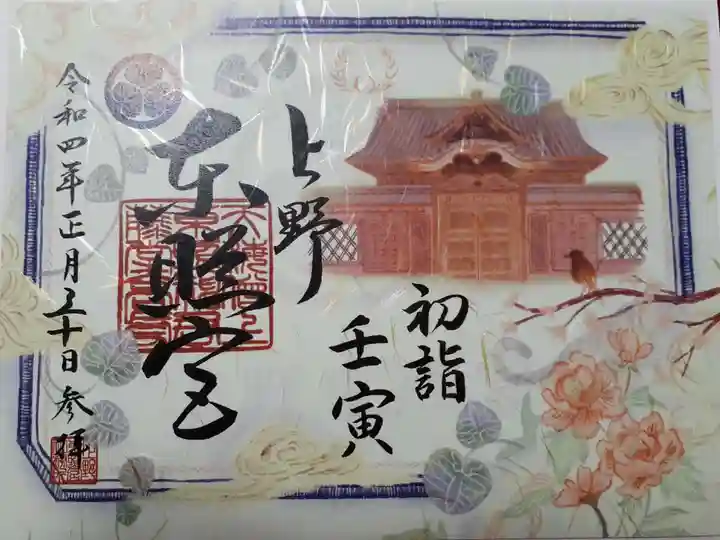 初詣
壬寅
上野
東照宮
令和四年正月三十日参拝